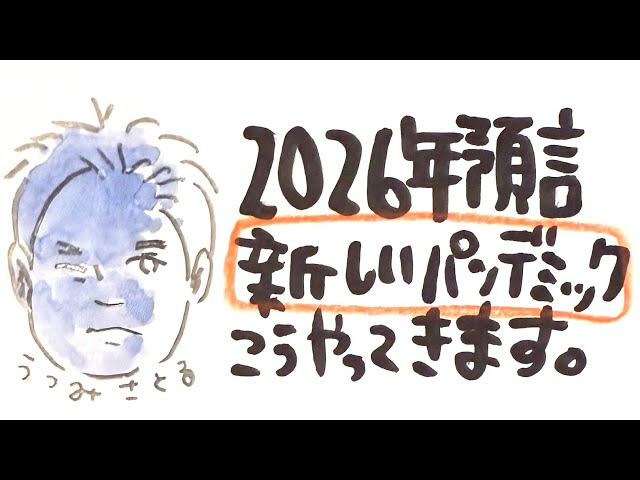 2026年預言
新しいパンデミック
こうやってきます。
うつみさとる